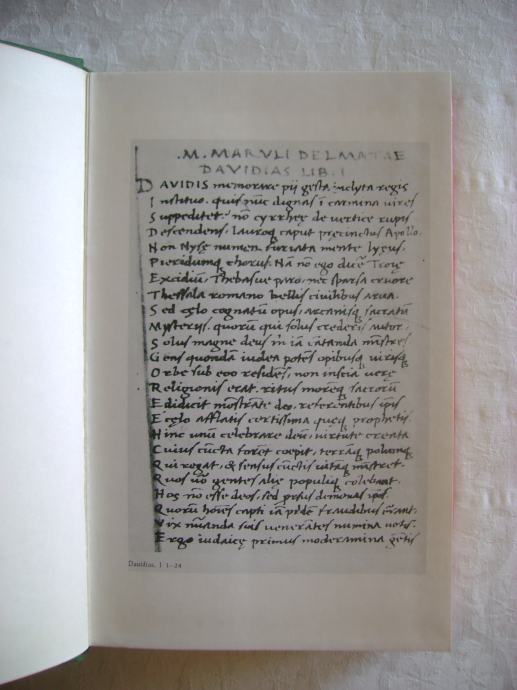 .M. MARVLI DELMATAE
DAVIDIAS LIB. I
DAVIDIS memorare pij gesta inclyta regis
Instituo. quis nūc dignas ī carmina vires
Suppeditet? nō cyrrhęę de vertice rupis
Descendens. Lauroq caput pręcinctus Apollo.
Non Nysę numen. furiata mente lyęus.
Pieridumq chorus. Nā nō ego ducē Troię
Excidiū, Thebasue puro, nec sparsa cruore
Thessala romano bellis ciuilibus arua.
Sed cęlo cognatū opus, arcanisq sacratū
Mysterijs. quorū qui solus crederis autor.
Solus magne deus mī iā cātanda mīstres
Gens quondā iudea potēs opibusq uirisq
Orbe sub eoo residēs, non inscia verę
Religionis erat. ritus moreq sacrorū
Edidicit mōstrāte deo. referentibus ipsis
E cęlo afflatis certissima quęq prophetis.
Hinc unū celebrare deū, uirtute creata
Cuius cūcta foret coepit, terrāq polumq
Qui rogat, & sensus cūctis uitāq mīstret.
Quos uō gentes alię populiq colebant.
Hos nō esse deos, sed prauos demonas ipsis.
Quorū hoīes capti iā pridē fraudibus errant.
Vix nūanda suis venerātes numina uotis.
Ergo iudaicę primus moderamina gētis
Davidias, I 1–24